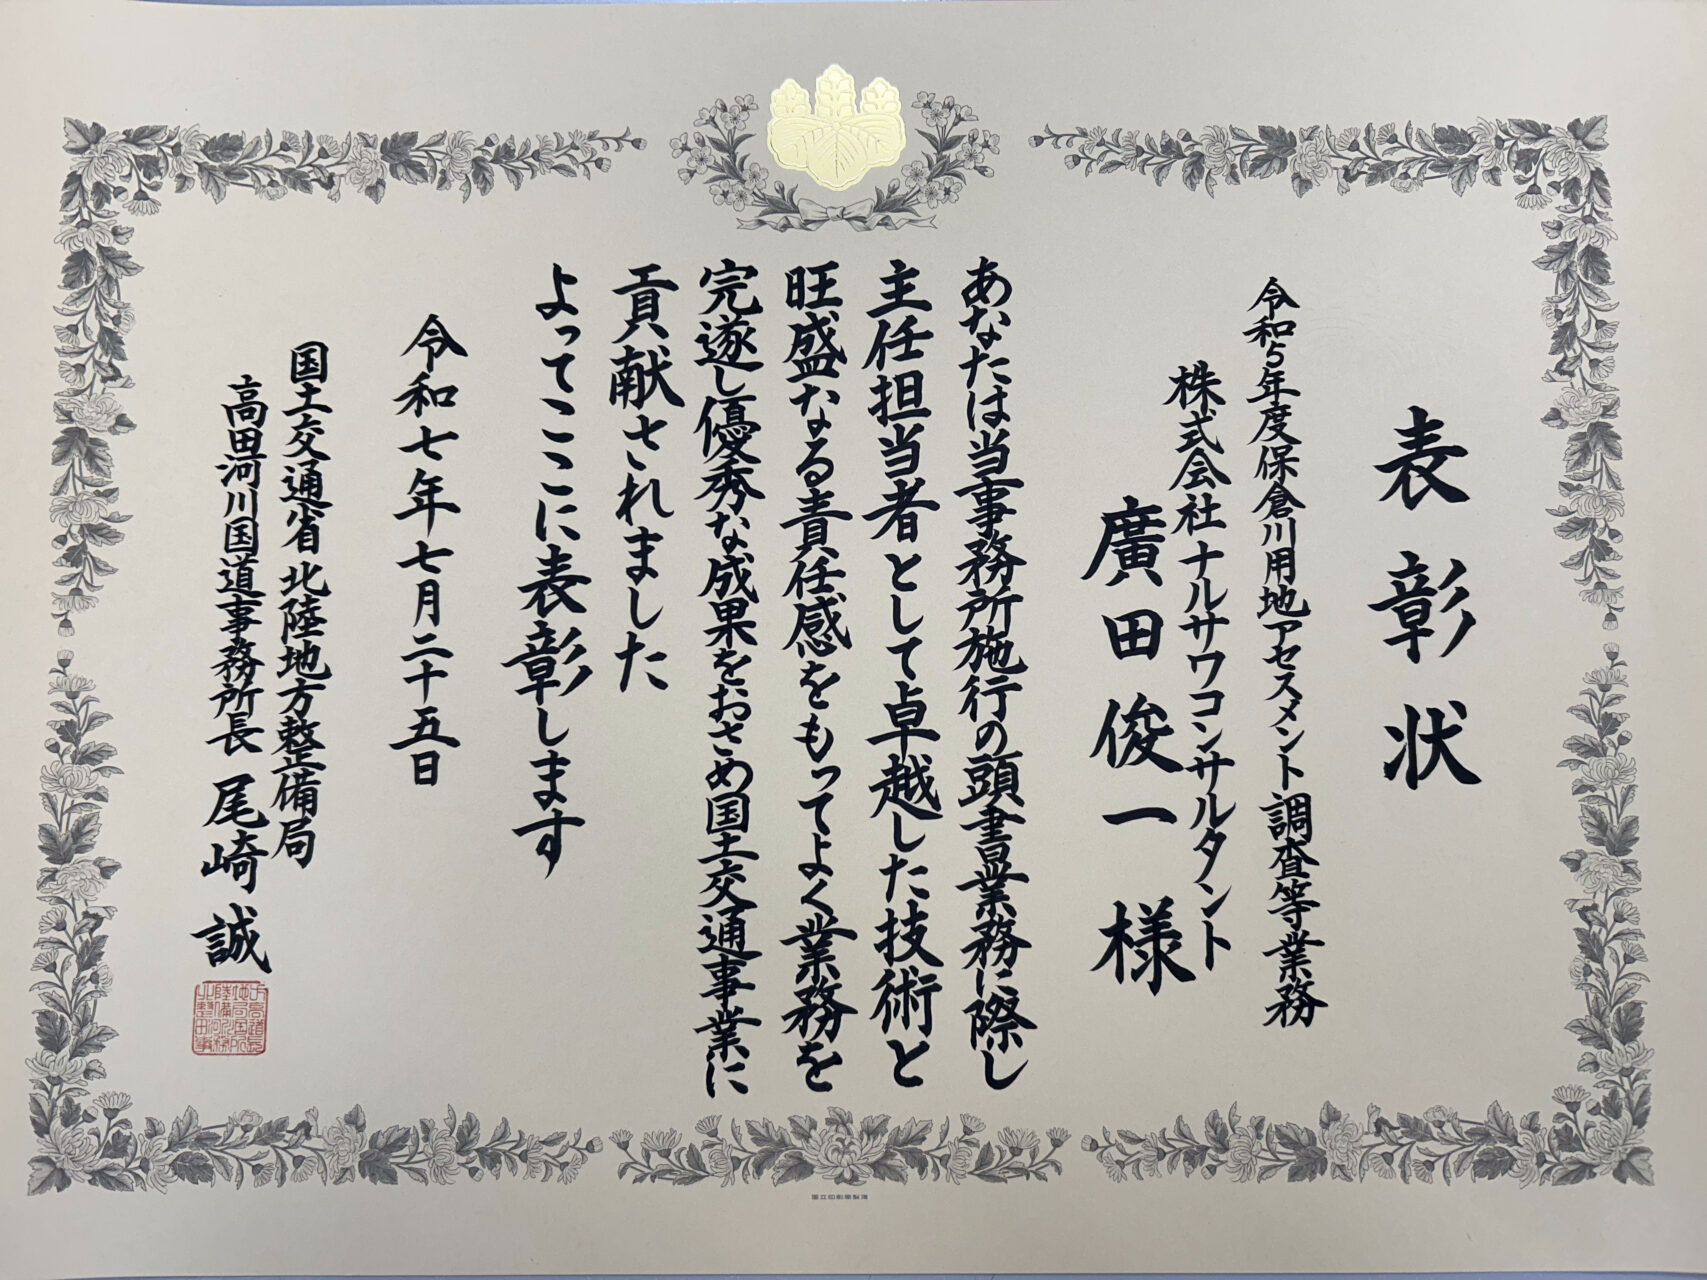 表彰状
令和5年度保倉川用地アセスメント調査等業務
株式会社ナルサワコンサルタント
廣田俊一様
あなたは当事務所施行の頭書業務に際し
主任担当者として卓越した技術と
旺盛なる責任感をもってよく業務を
完遂し優秀な成果をおさめ国土交通事業に
貢献されました
よってここに表彰します
令和七年七月二十五日
国土交通省北陸地方整備局
高田河川国道事務所長 尾崎誠